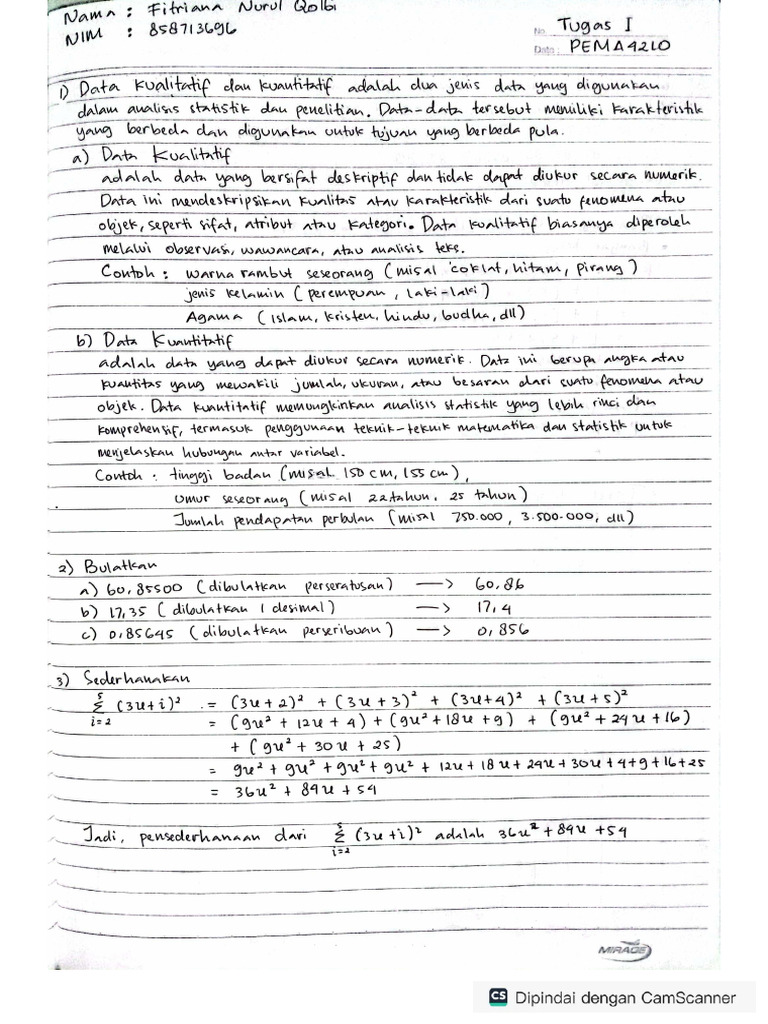 Nama : Fitriana Nurul Qolbi
NIM : 858713696
No. Tugas I
Date: PEMA4210
1) Data Kualitatif dan Kuantitatif adalah dua jenis data yang digunakan
dalam analisis statistik dan penelitian. Data-data tersebut memiliki karakteristik
yang berbeda dan digunakan untuk tujuan yang berbeda pula.
a) Data Kualitatif
adalah data yang bersifat deskriptif dan tidak dapat diukur secara numerik.
Data ini mendeskripsikan kualitas atau karakteristik dari suatu fenomena atau
objek, seperti sifat, atribut atau kategori. Data kualitatif biasanya diperoleh
melalui observasi, wawancara, atau analisis teks.
Contoh : warna rambut seseorang (misal coklat, hitam, pirang)
jenis kelamin (perempuan, laki-laki)
Agama (islam, kristen, hindu, budha, dll)
b) Data Kuantitatif
adalah data yang dapat diukur secara numerik. Data ini berupa angka atau
kuantitas yang mewakili jumlah, ukuran, atau besaran dari suatu fenomena atau
objek. Data kuantitatif memungkinkan analisis statistik yang lebih rinci dan
komprehensif, termasuk penggunaan teknik-teknik matematika dan statistik untuk
menjelaskan hubungan antar variabel.
Contoh : tinggi badan (misal 150 cm, 155 cm),
umur seseorang (misal 22 tahun, 25 tahun)
Jumlah pendapatan perbulan (misal 750.000, 3.500.000, dll)
2) Bulatkan
a) 60,85500 (dibulatkan perseratusan) —> 60,86
b) 17,35 (dibulatkan 1 desimal) —> 17,4
c) 0,85645 (dibulatkan perseribuan) —> 0,856
3) Sederhanakan
5
Σ (3u+i)² = (3u+2)² + (3u+3)² + (3u+4)² + (3u+5)²
i=2 = (9u² + 12u + 4) + (9u² + 18u + 9) + (9u² + 24u + 16)
+ (9u² + 30u + 25)
= 9u² + 9u² + 9u² + 9u² + 12u + 18u + 24u + 30u + 4+9+16+25
= 36u² + 84u + 54
Jadi, pensederhanaan dari 5 Σ i=2 (3u+i)² adalah 36u² + 84u + 54
MIRAGE
CS Dipindai dengan CamScanner